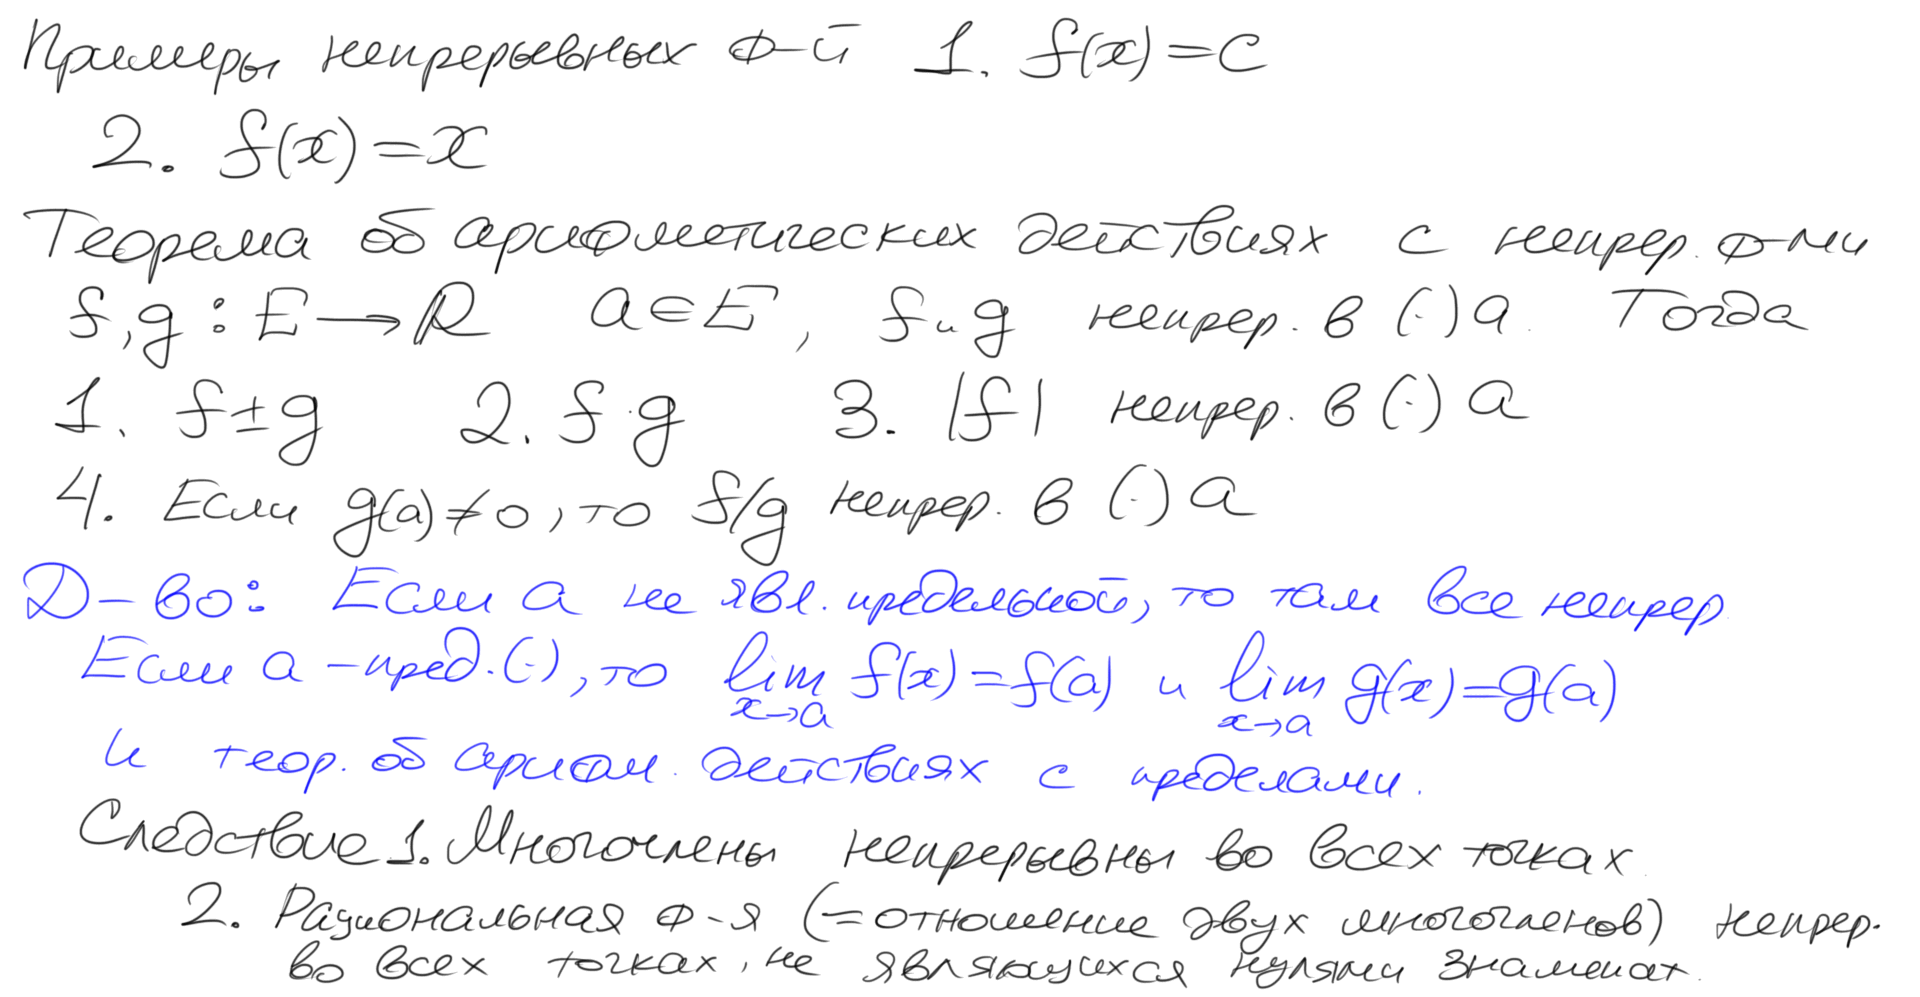 Примеры непрерывных ф-й 1. f(x)=c
2. f(x)=x
Теорема об арифметических действиях с непрер. ф-ми
f,g : E→ℝ a∈E, f и g непрер. в (·) a. Тогда
1. f±g 2. f·g 3. |f| непрер. в (·) a
4. Если g(a)≠0, то f/g непрер. в (·) a
Д-во: Если a не явл. предельной, то там все непрер
Если a – пред. (·), то lim x→a f(x)=f(a) и lim x→a g(x)=g(a)
и теор. об арифм. действиях с пределами.
Следствие 1. Многочлены непрерывны во всех точках
2. Рациональная ф-я (= отношение двух многочленов) непрер.
во всех точках, не являющихся нулями знаменат.